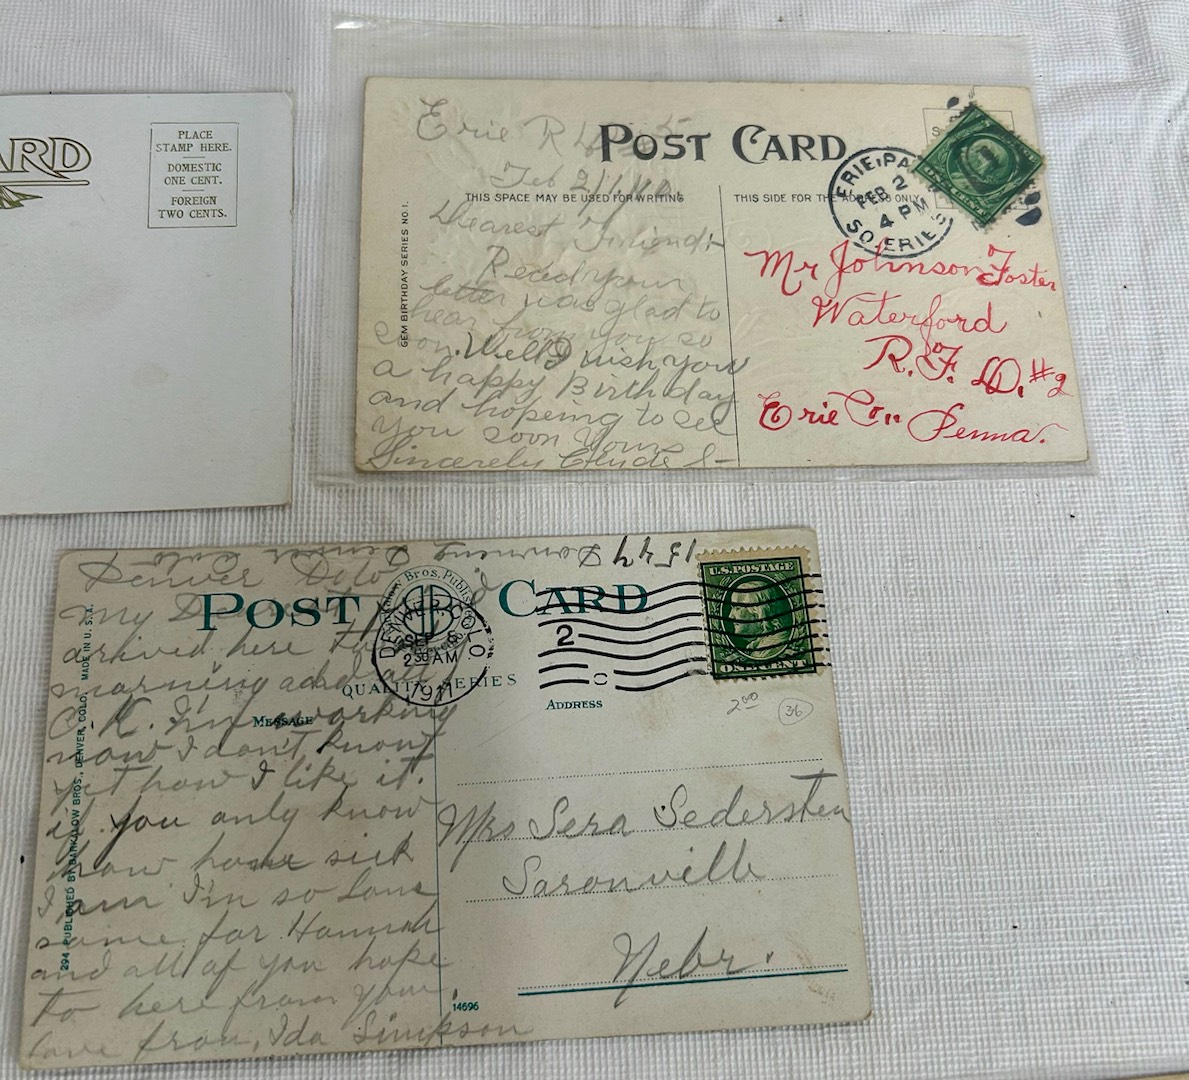 ARD
PLACE
STAMP HERE.
DOMESTIC
ONE CENT.
FOREIGN
TWO CENTS.
Erie R
POST CARD
Feb 2
THIS SPACE MAY BE USED FOR WRITING
THIS SIDE FOR THE ADDRESS ONLY
GEM BIRTHDAY SERIES NO. 1.
ERIE, PA.
FEB 2
4 PM
SO. ERIE S
Dearest Friend:-
Recd your
letter was glad to
hear from you so
soon. Well I wish you
a happy Birthday
and hopeing to see
you soon Yours
Sincerely Clyde S-
Mr Johnson Foster
Waterford
R. F. D. #2
Erie Co., Penna.
1547 Downing Denver Colo
Denver Colo
POST CARD
QUALITY SERIES
MESSAGE
ADDRESS
DENVER, COLO.
SEP 8
2 30 AM
1911
2
U.S. POSTAGE
ONE CENT
2.00
36
294 PUBLISHED BY BARKALOW BROS., DENVER, COLO. MADE IN U. S. A.
My D
arived here
morning and all
O. K. I'm working
now I don't know
yet how I like it.
if you only know
how home sick
I am I'm so lone
some for Hannah
and all of you hope
to here from you.
love from, Ida Simpson
14696
Mrs Sera Sedersten
Saronville
Nebr.